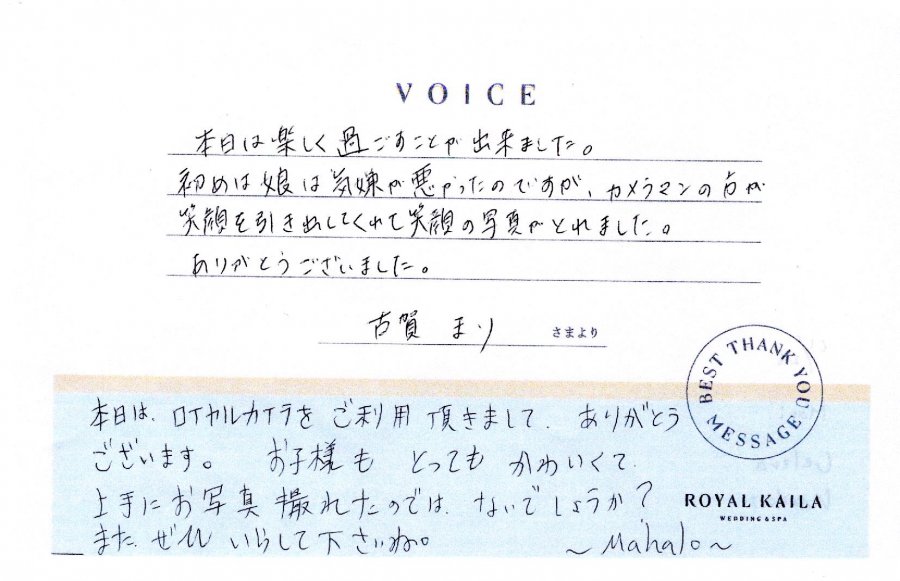 VOICE
本日は楽しく過ごすことが出来ました。
初めは娘は気嫌が悪かったのですが、カメラマンの方が
笑顔を引き出してくれて笑顔の写真がとれました。
ありがとうございました。
古賀 まり さまより
BEST THANK YOU MESSAGE
本日は、ロイヤルカイラをご利用頂きまして、ありがとう
ございます。 お子様も とっても かわいくて、
上手にお写真撮れたのでは、ないでしょうか?
また、ぜひ いらして下さいね。
~Mahalo~
ROYAL KAILA
WEDDING & SPA